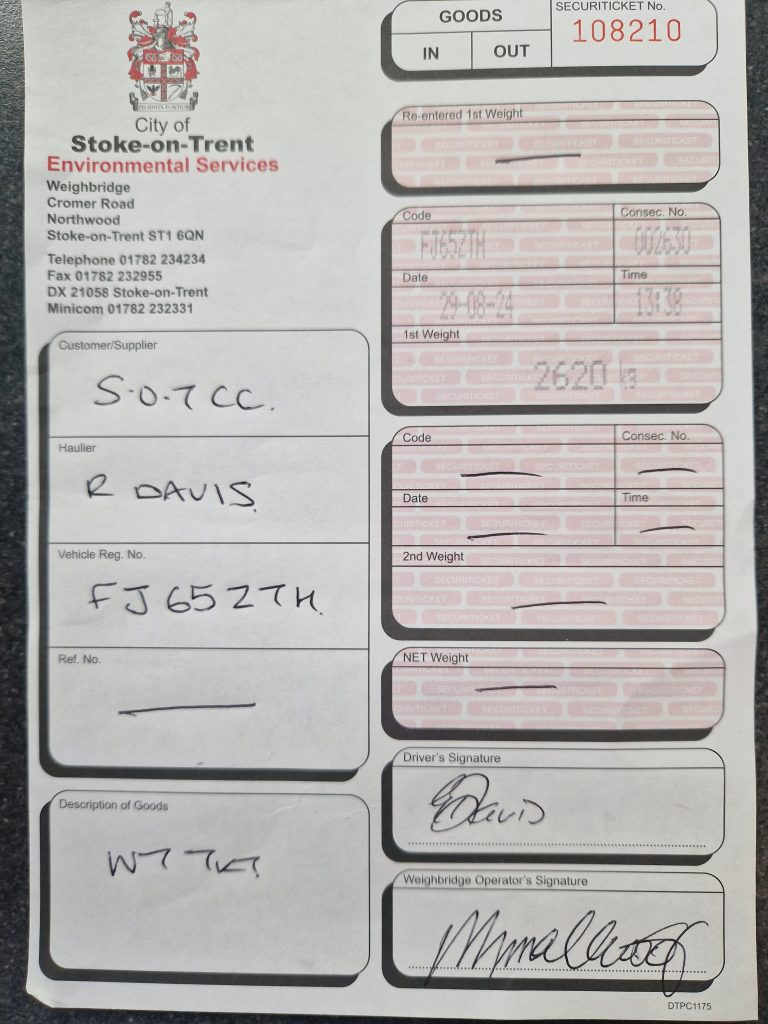 GOODS
IN OUT
SECURITICKET No.
108210
City of
Stoke-on-Trent
Environmental Services
Weighbridge
Cromer Road
Northwood
Stoke-on-Trent ST1 6QN
Telephone 01782 234234
Fax 01782 232955
DX 21058 Stoke-on-Trent
Minicom 01782 232331
Customer/Supplier
S.O.T CC.
Haulier
R DAVIS
Vehicle Reg. No.
FJ65ZTH
Ref. No.
Description of Goods
WT TKT
Re-entered 1st Weight
Code
FJ65ZTH
Consec. No.
002630
Date
29-08-24
Time
13:38
1st Weight
2620 kg
Code
Consec. No.
Date
Time
2nd Weight
NET Weight
Driver's Signature
Davis
Weighbridge Operator's Signature
DTPC1175